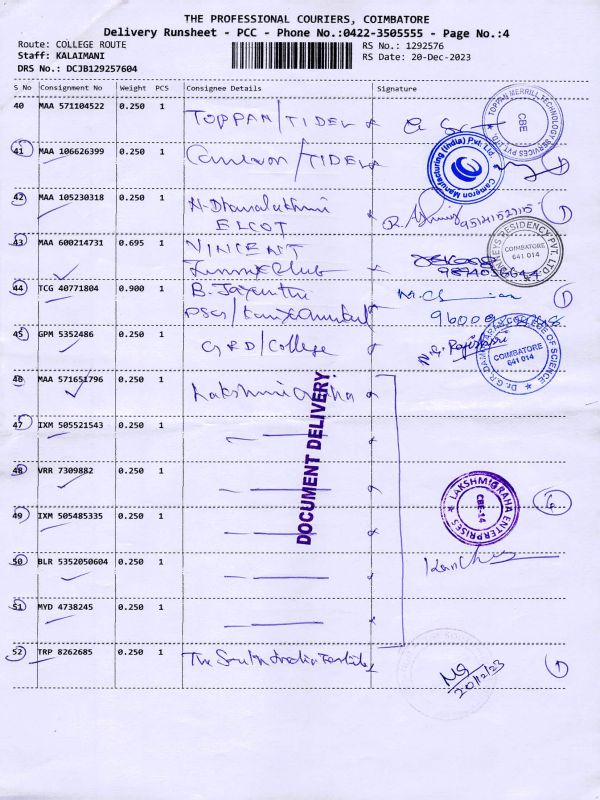 THE PROFESSIONAL COURIERS, COIMBATORE
Delivery Runsheet - PCC - Phone No.:0422-3505555 - Page No.:4
Route: COLLEGE ROUTE
RS No.: 1292576
Staff: KALAIMANI
RS Date: 20-Dec-2023
DRS No.: DCJB129257604
S No Consignment No Weight PCS Consignee Details Signature
40 MAA 571104522 0.250 1 TOPPAN/TIDEL
TOPPAN MERRILL TECHNOLOGY SERVICES PVT LTD
CBE
41 MAA 106626399 0.250 1 Cameron/TIDEL
Cameron Manufacturing (India) Pvt. Ltd.
42 MAA 105230318 0.250 1
ELCOT
43 MAA 600214731 0.695 1 VINCENT
RESIDENCY PVT. LTD
COIMBATORE
641 014
44 TCG 40771804 0.900 1 B. Jayanthi
PSG/
45 GPM 5352486 0.250 1 GRD/College
COLLEGE OF SCIENCE
COIMBATORE
641 014
Dr. G.R.
46 MAA 571651796 0.250 1 Lakshmigraha
DOCUMENT DELIVERY
47 IXM 505521543 0.250 1
48 VRR 7309882 0.250 1
LAKSHMIGRAHA ENTERPRISES
CBE-14
6
49 IXM 505485335 0.250 1
50 BLR 5352050604 0.250 1
51 MYD 4738245 0.250 1
52 TRP 8262685 0.250 1 The South India Textile
20/12/23
1